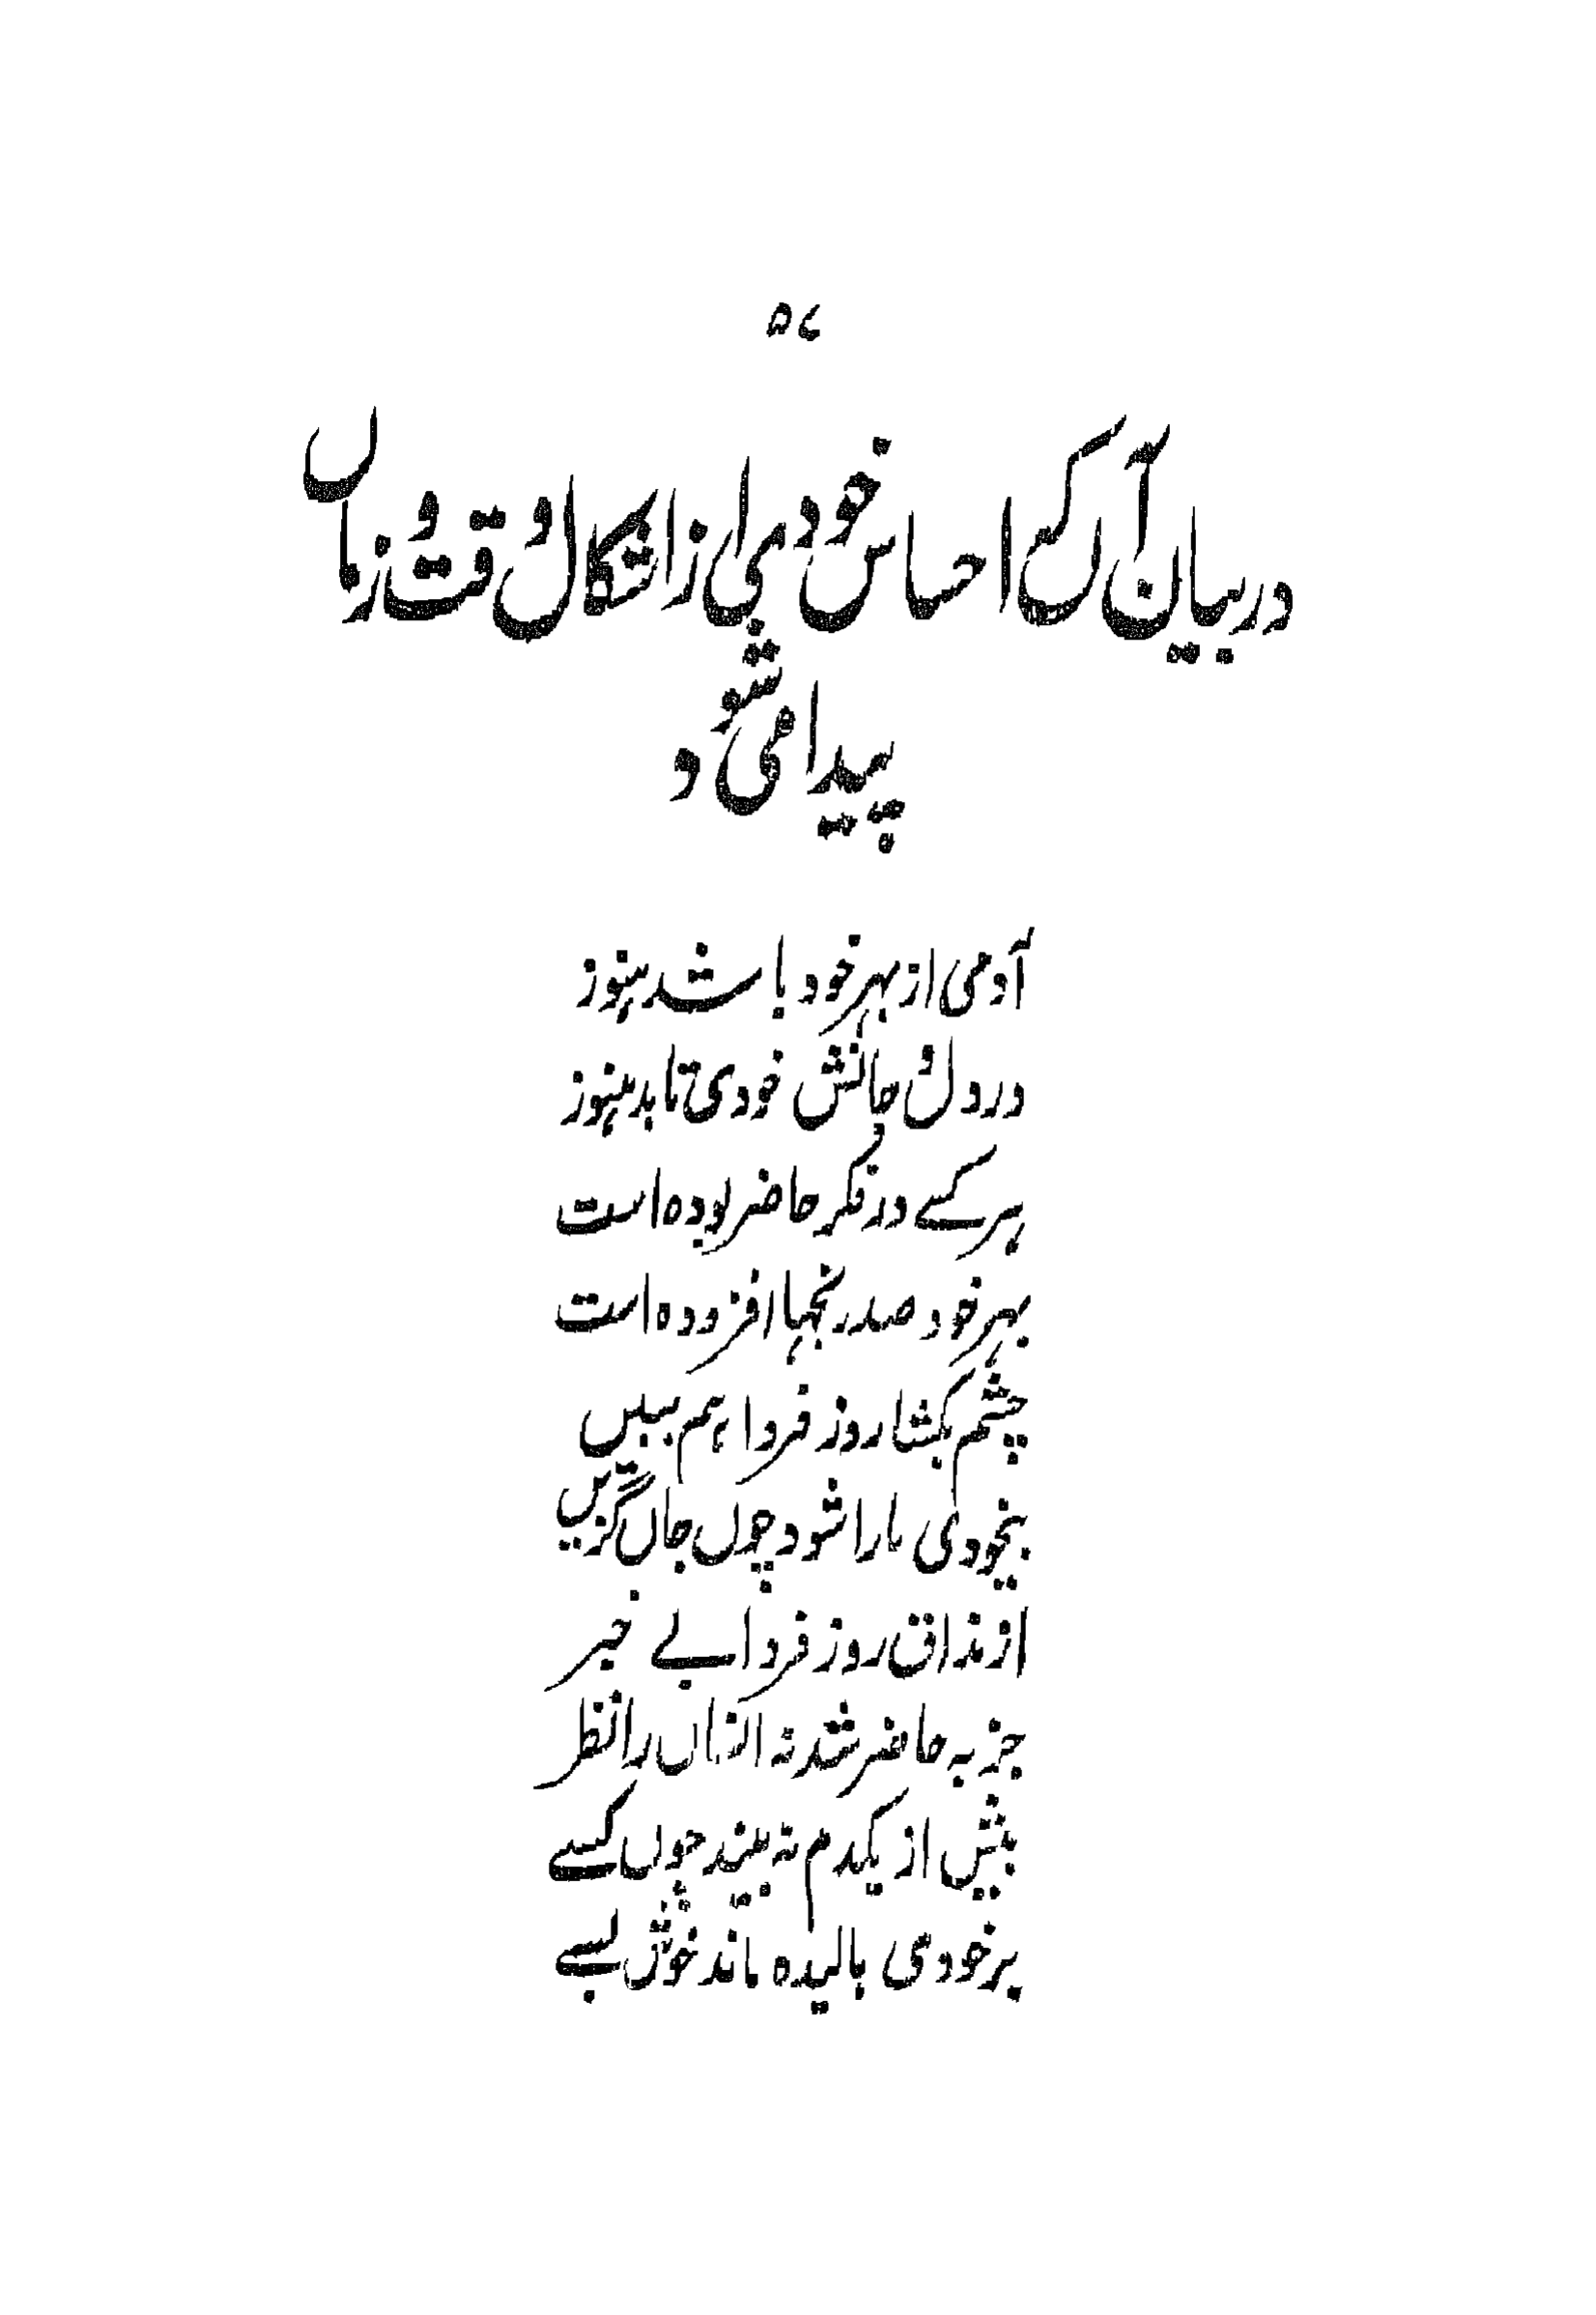 ۵۷
در بیان آں کہ احساس خودی از اشکال و وقت و زماں
پیدا می شود
آدمی از بہر خود باشد ہنوز
در دل و جانش خودی تابد ہنوز
ہر کسے در فکر حاضر بودہ است
بہر خود صد رنجہا افزودہ است
چشم بکشا روز فردا ہم ببیں
بیخودی ما را شود چوں جاں گزیں
از مذاق روز فردا بے خبر
جز بہ حاضر شد نہ انساں را نظر
بیش از یکدم نہ بیند چوں کسے
بر خودی بالیدہ ماند خوش بسے